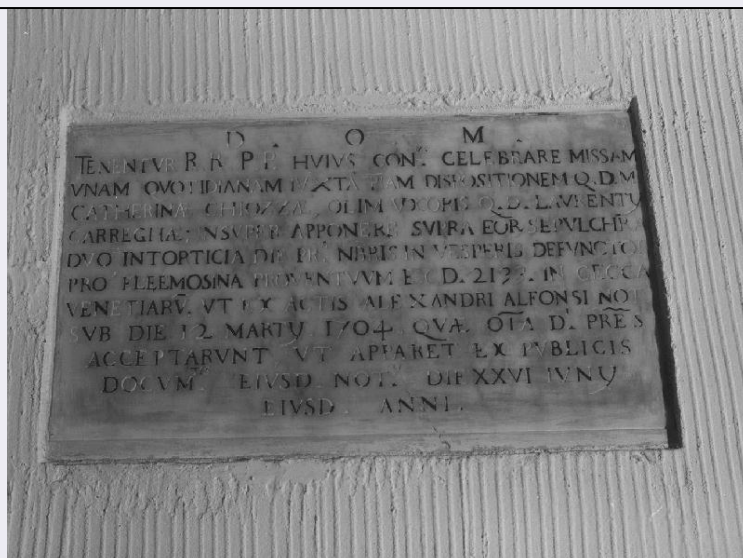 D. O. M.
TENENTVR R. R. P. P. HVIVS CONᵗ. CELEBRARE MISSAM
VNAM QVOTIDIANAM IVXTA DISPOSITIONEM Q. D. M
CATHERINÆ CHIOZZÆ, OLIM Q. D. LAVRENTY
CARREGHÆ; INSVPER APPONERE SVPRA EOR SEPVLCHR
DVO INTOPTICIA DIE IN VESPERIS DEFVNCTO
PRO ELEEMOSINA PROVENTVVM D. IN CECCA
VENETIARV̄. VT EX ACTIS ALEXANDRI ALFONSI NOT
SVB DIE 12 MARTY 1704. QVÆ. OĪA D. PRĒS
ACCEPTARVNT VT APPARET EX PVBLICIS
DOCVMᵗⁱˢ EIVSD NOT. DIE XXVI IVNY
EIVSD ANNI.